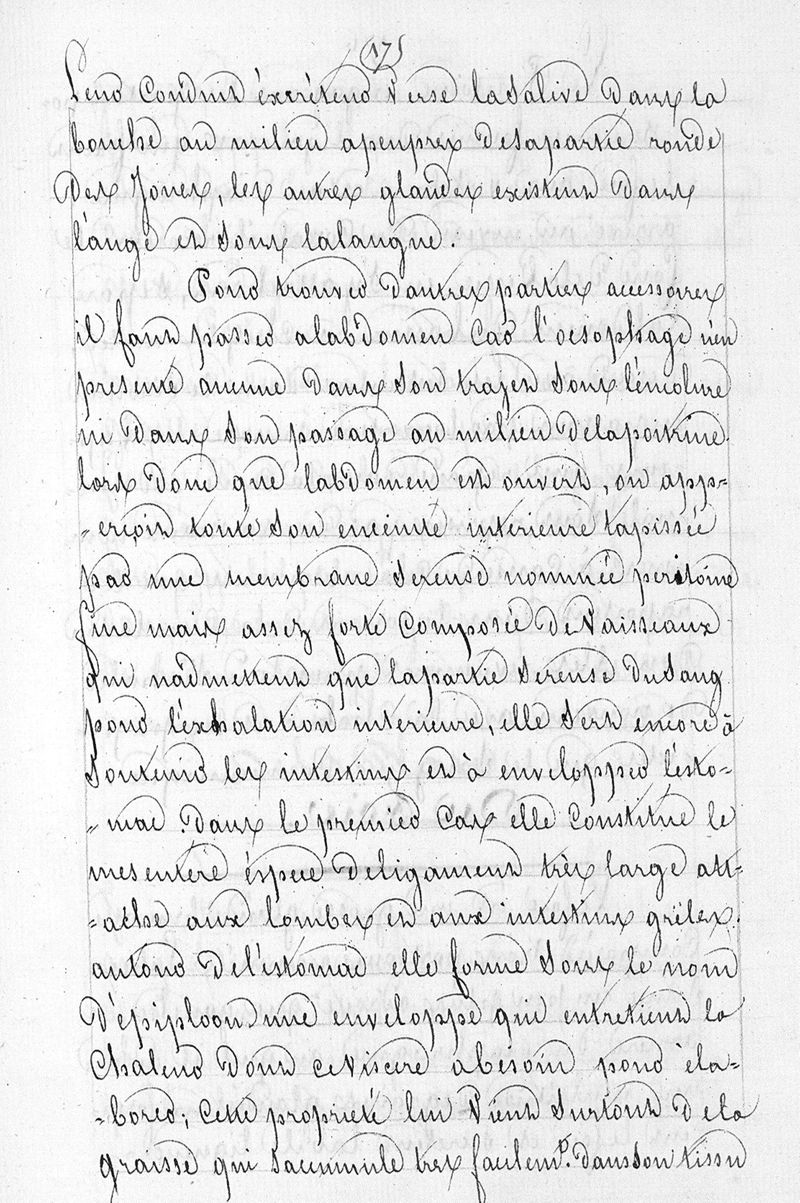 (17)
Leur conduit éxcréteur verse lasalive dans la
bouche au milieu apeuprex desapartie ronde
des joues, les autres glandes existent dans
l'auge et sous lalangue.
Pour trouver dautres parties accessoires
il faut passer alabdomen car l'oesophage n'en
presente aucune dans son trajet sous l'encolure
ni dans son passage au milieu delapoitrine.
lors donc que labdomen est ouvert, on app-
-erçoit toute son enceinte intérieure tapissée
par une membrane sereuse nommée peritoine
fine mais assez forte composée devaisseaux
qui nadmettent que lapartie sereuse dusang
pour l'exhalation interieure, elle sert encore à
soutenir les intestins et à envelopper l'esto-
-mac. dans le premier cas elle constitue le
mesentère éspece deligament très large att-
-aché aux lombes et aux intestins grêles.
autour del'estomac elle forme sous le nom
d'épiploon une enveloppe qui entretient la
chaleur dont ceviscere abesoin pour éla-
-borer; cette propriété lui vient surtout dela
graisse qui saccumule tres facilemt. dansson tissu